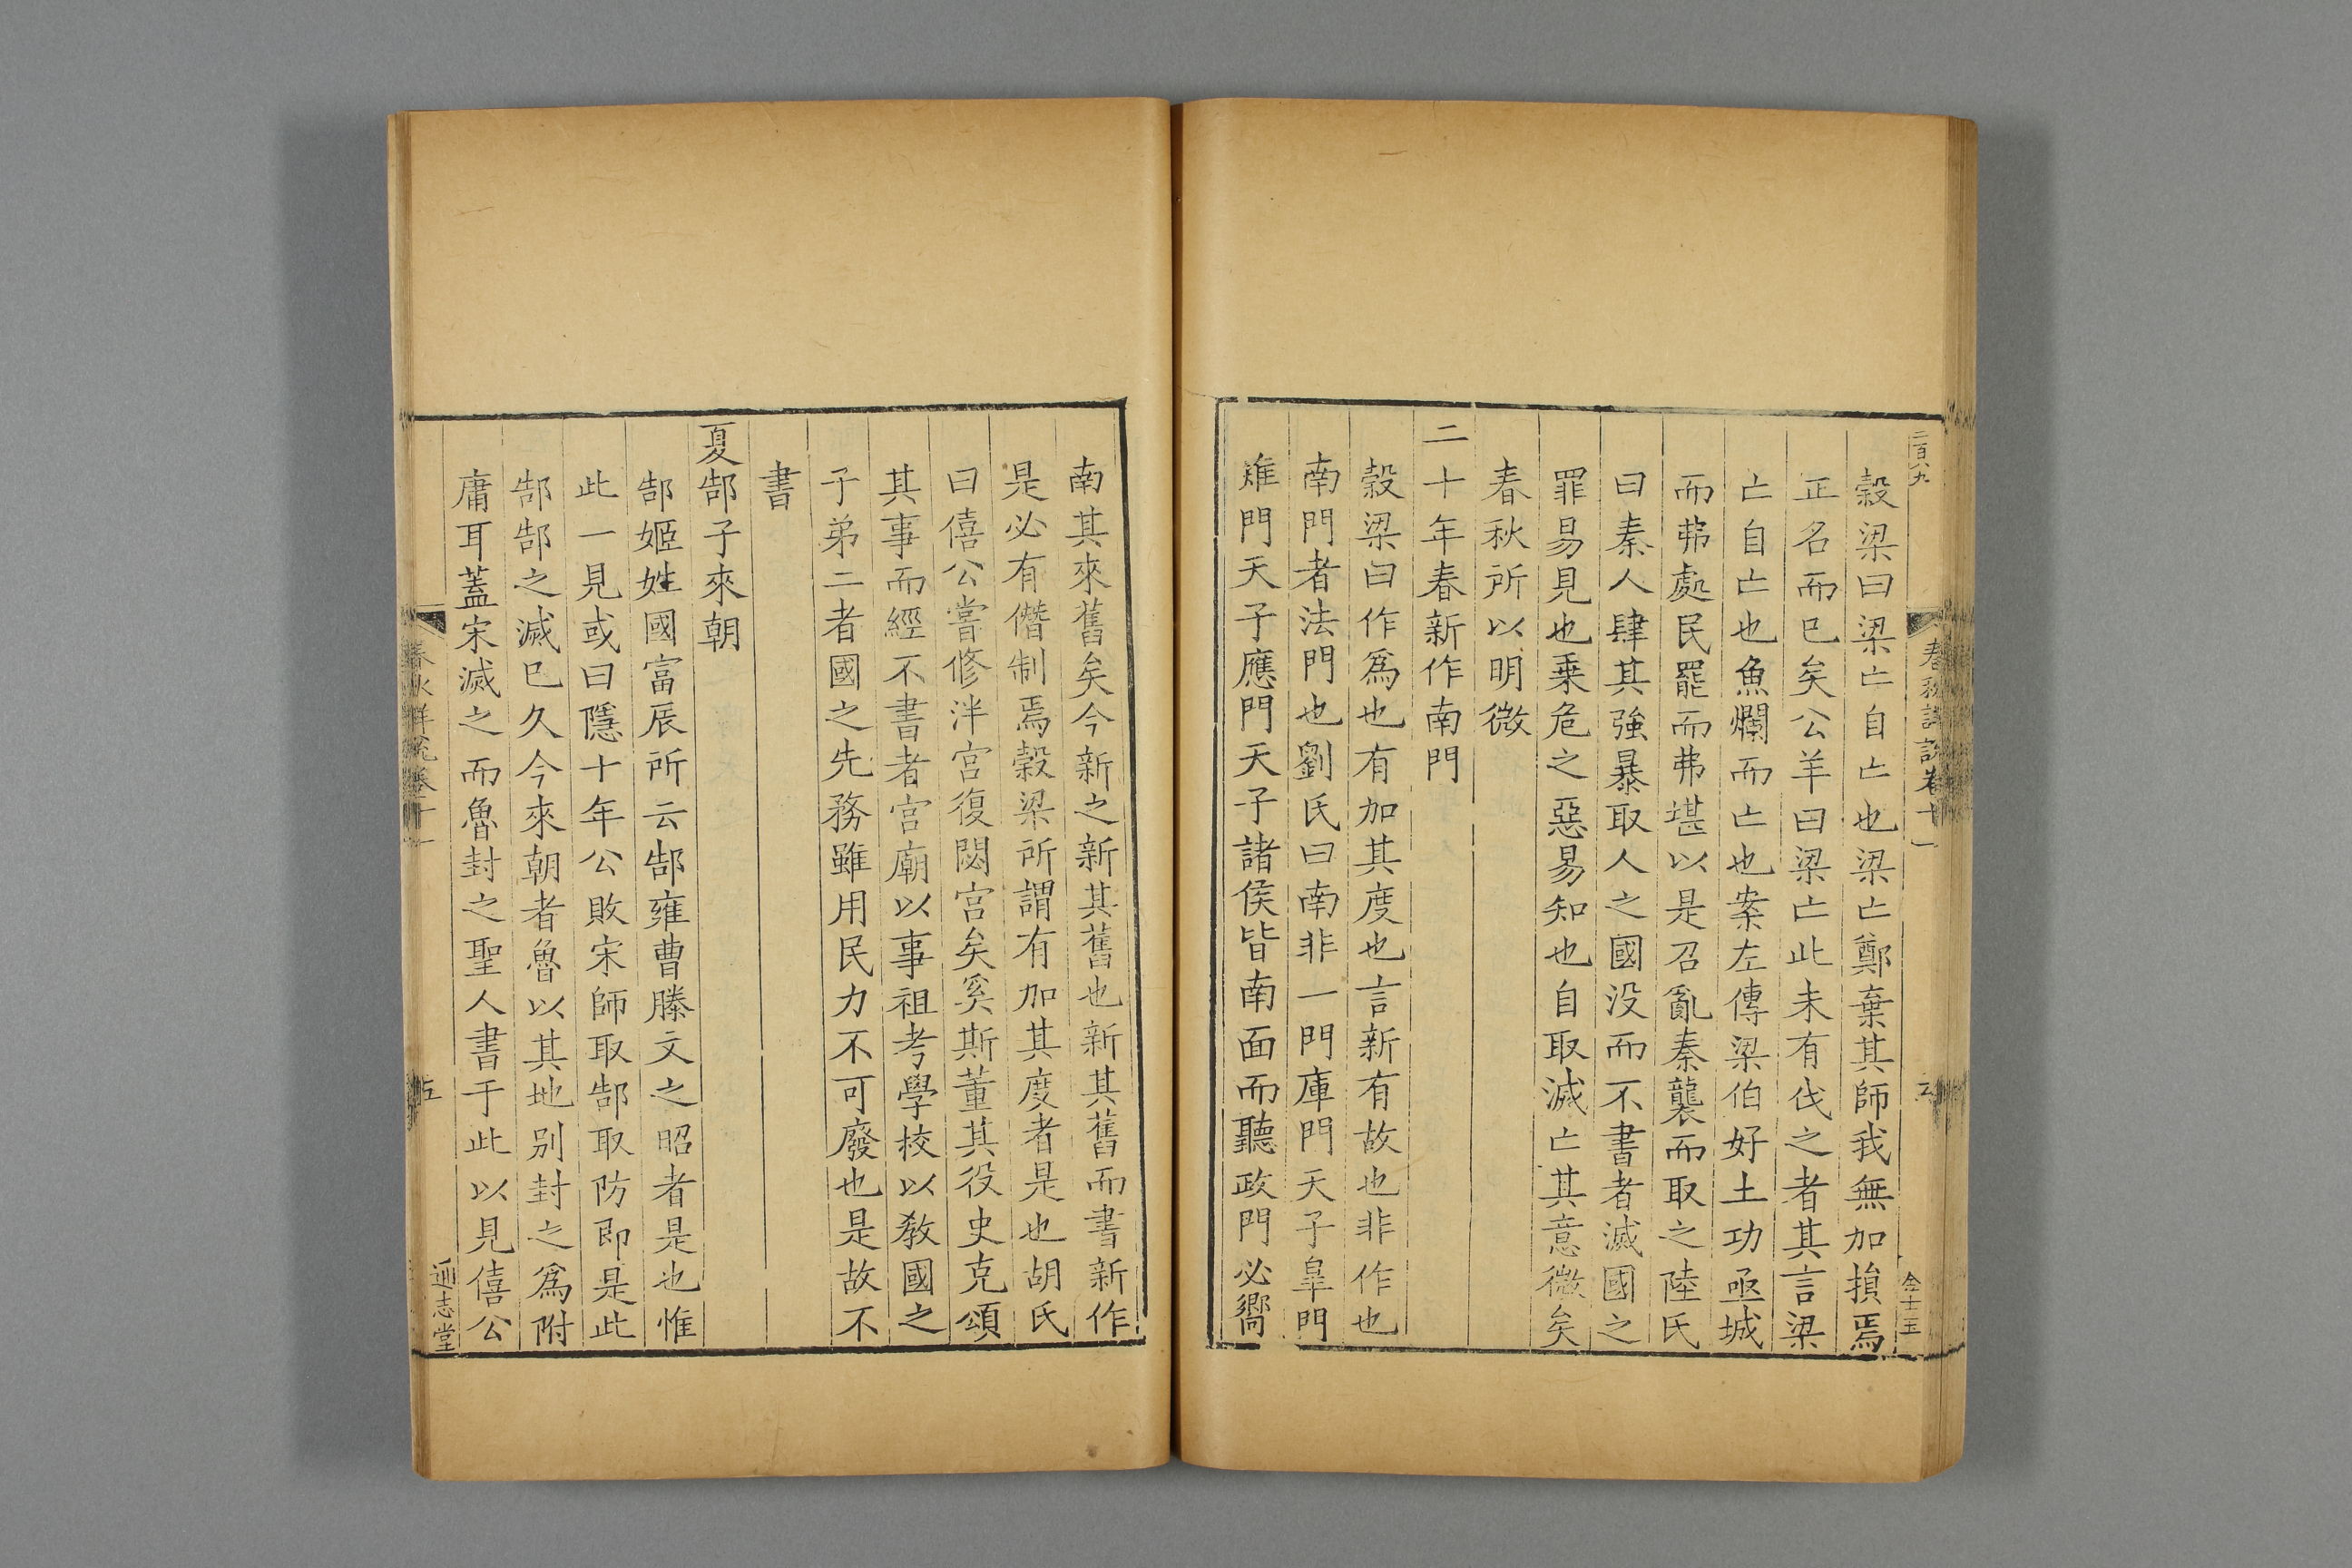 二百八九
春秋詳說卷十一
金士玉
穀梁曰梁亡自亡也梁亡鄭棄其師我無加損焉
正名而已矣公羊曰梁亡此未有伐之者其言梁
亡自亡也魚爛而亡也案左傳梁伯好土功亟城
而弗處民罷而弗堪以是召亂秦襲而取之陸氏
曰秦人肆其強暴取人之國没而不書者滅國之
罪易見也乗危之惡易知也自取滅亡其意微矣
春秋所以明微
二十年春新作南門
穀梁曰作爲也有加其度也言新有故也非作也
南門者法門也劉氏曰南非一門庫門天子臯門
雉門天子應門天子諸侯皆南面而聽政門必嚮
南其來舊矣今新之新其舊也新其舊而書新作
是必有僭制焉穀梁所謂有加其度者是也胡氏
曰僖公嘗修泮宮復閟宮矣奚斯董其役史克頌
其事而經不書者宮廟以事祖考學校以敎國之
子弟二者國之先務雖用民力不可廢也是故不
書
夏郜子來朝
郜姬姓國富辰所云郜雍曹滕文之昭者是也惟
此一見或曰隱十年公敗宋師取郜取防即是此
郜郜之滅已久今來朝者魯以其地别封之爲附
庸耳蓋宋滅之而魯封之聖人書于此以見僖公
春秋詳說卷十一
五
通志堂